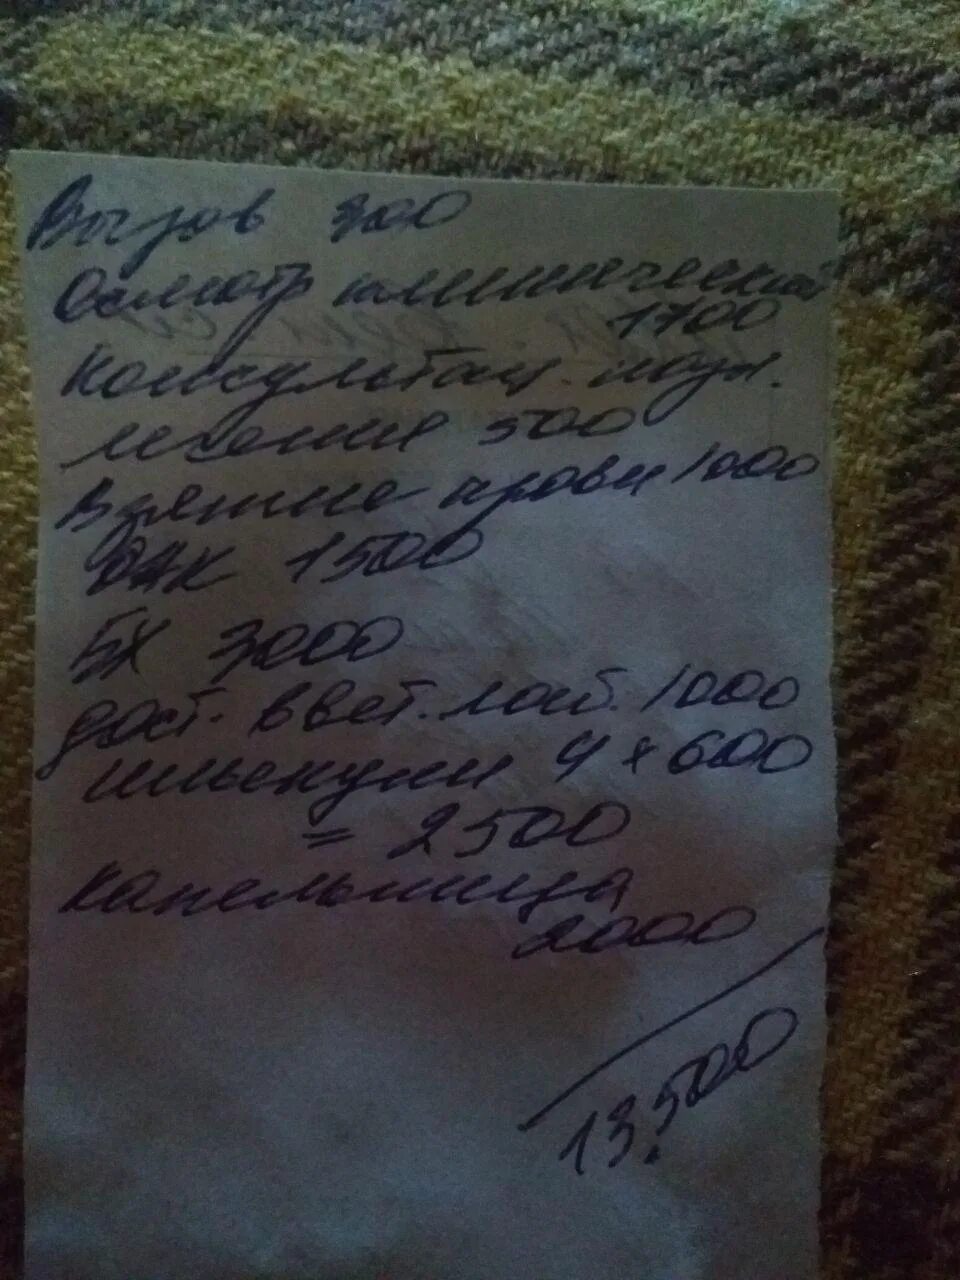 Вызов 300
Осмотр клинический
1700
Консультац.
лечения 500
Взятие крови 1000
ОАК 1500
БХ 3000
дост. в вет. лаб. 1000
инъекции 4 х 600
= 2500
капельница
2000
13.500